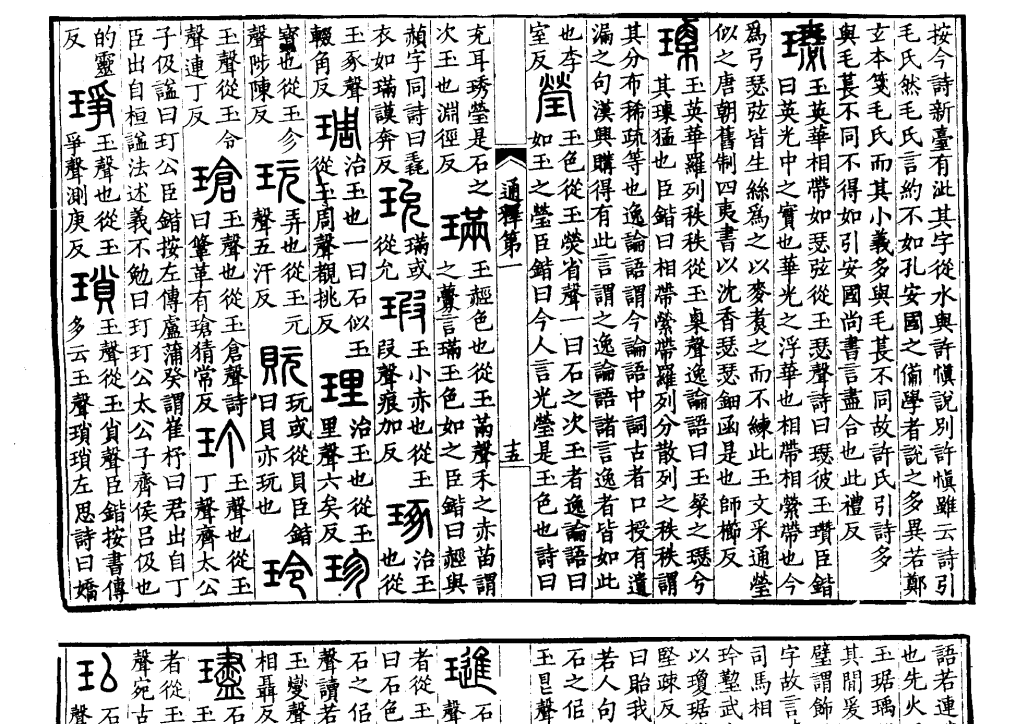 按今詩新臺有泚其字從水與許慎說別許慎雖云詩引
毛氏然毛氏言約不如孔安國之僃學者說之多異若鄭
玄本箋毛氏而其小義多與毛萇不同故許氏引詩多
與毛萇不同不得如引安國尚書言盡合也此禮反
璱 玉英華相帶如瑟弦從玉瑟聲詩曰璱彼玉瓚臣鍇
曰英光中之實也華光之浮華也相帶相縈帶也今
爲弓瑟弦皆生絲爲之以麥煑之而不練此玉文采通瑩
似之唐朝舊制四夷書以沈香瑟瑟鈿函是也師櫛反
瑮 玉英華羅列秩秩從玉㮚聲逸論語曰玉粲之璱兮
其瑮猛也臣鍇曰相帶縈帶羅列分散列之秩秩謂
其分布稀疏等也逸論語謂今論語中詞古者口授有遺
漏之句漢興購得有此言謂之逸論語諸言逸者皆如此
也李室反 瑩 玉色從玉熒省聲一曰石之次玉者逸論語曰
如玉之瑩臣鍇曰今人言光瑩是玉色也詩曰
通釋第一 十五
充耳琇瑩是石之次玉也淵徑反 璊 玉䞓色也從玉㒼聲禾之赤苗謂
之虋言璊玉色如之臣鍇曰䞓與
赬字同詩曰毳衣如璊謨奔反 玧 璊或從允 瑕 玉小赤也從玉叚聲痕加反 琢 治玉也從
玉豖聲輟角反 琱 治玉也一曰石似玉從玉周聲覩挑反 理 治玉也從玉里聲六矣反 珍
寶也從玉㐱聲陟陳反 玩 弄也從玉元聲五汗反 貦 玩或從貝臣鍇曰貝亦玩也 玲
玉聲從玉令聲連丁反 瑲 玉聲也從玉倉聲詩曰肇革有瑲猜常反 玎 玉聲也從玉丁聲齊太公
子伋謚曰玎公臣鍇按左傳盧蒲癸謂崔杼曰君出自丁
臣出自桓謚法述義不勉曰玎玎公太公子齊侯呂伋也
的靈反 琤 玉聲也從玉爭聲測庚反 瑣 玉聲從玉𧴪聲臣鍇按書傳
多云玉聲瑣瑣左思詩曰嬌
語若連
也先火
玉琚瑀
其閒爰
璧謂飾
字故言
司馬相
武
以瓊琚
堅疎反
曰貽我
若人句
石之佀
玉㠯聲
璡 石
聲
者從玉
曰石色
石之佀
聲讀若
玉燮聲
相聶反
璶 石
者從玉
聲宛古
石
聲